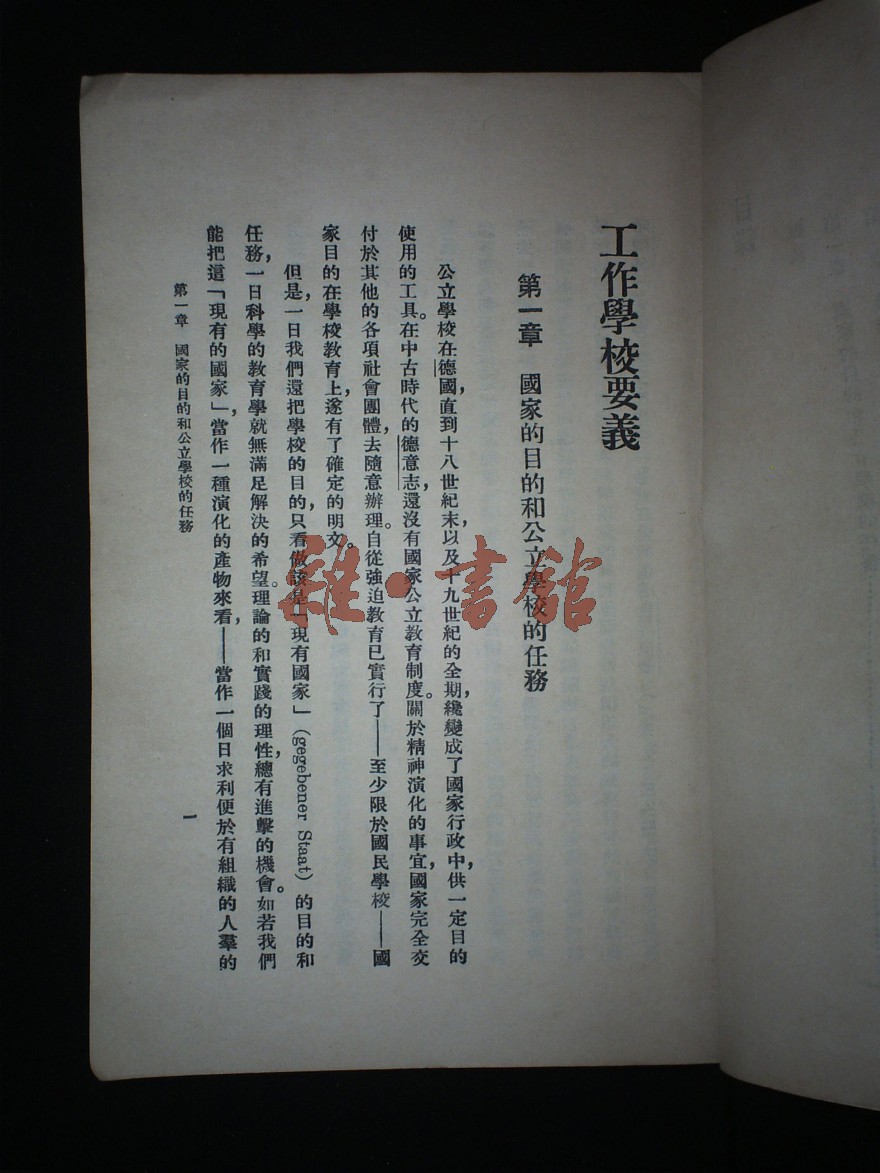 工作學校要義
第一章 國家的目的和公立學校的任務
公立學校在德國，直到十八世紀末，以及十九世紀的全期，纔變成了國家行政中，供一定目的
使用的工具。在中古時代的德意志，還沒有國家公立教育制度。關於精神演化的事宜，國家完全交
付於其他的各項社會團體，去隨意辦理。自從強迫教育已實行了——至少限於國民學校——國
家目的在學校教育上，遂有了確定的明文。
但是，一日我們還把學校的目的，只看做該是「現有國家」（gegebener Staat）的目的和
任務，一日科學的教育學就無滿足解決的希望。理論的和實踐的理性，總有進擊的機會。如若我們
能把這「現有的國家」，當作一種演化的產物來看，——當作一個日求利便於有組織的人羣的
第一章 國家的目的和公立學校的任務
一
雜·書館